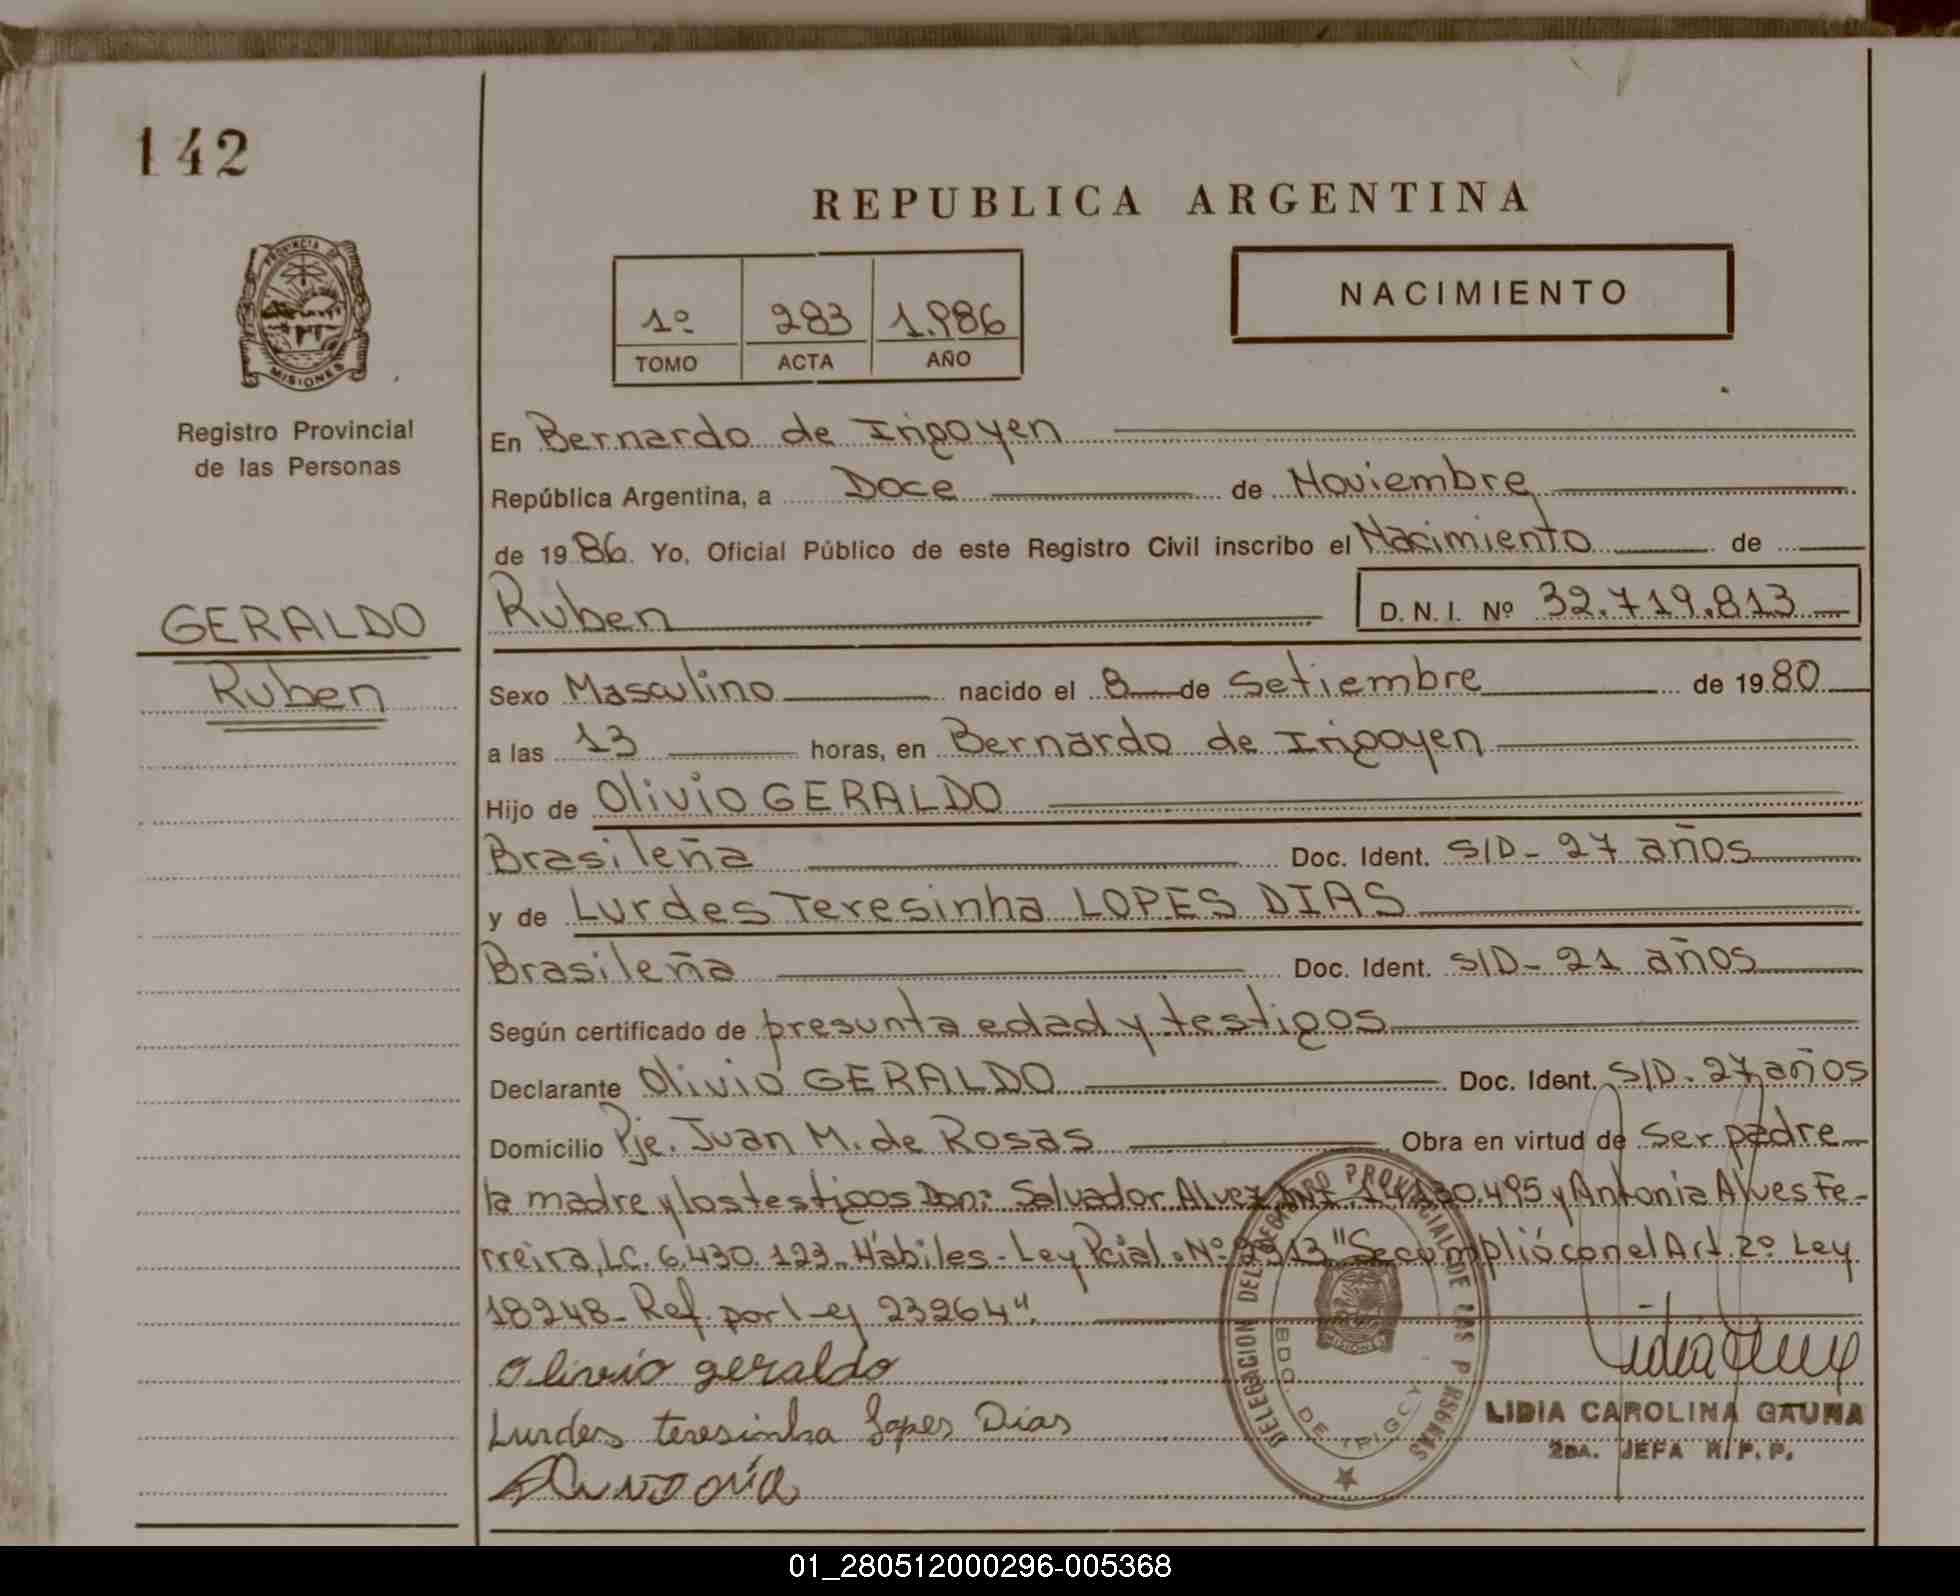 142
REPUBLICA ARGENTINA
PROVINCIA DE
MISIONES
Registro Provincial
de las Personas
1º 283 1.986
TOMO ACTA AÑO
NACIMIENTO
En Bernardo de Irigoyen
República Argentina, a Doce de Noviembre
de 1986. Yo, Oficial Público de este Registro Civil inscribo el Nacimiento de
GERALDO
Ruben
Ruben D.N.I. Nº 32.719.813
Sexo Masculino nacido el 8 de Setiembre de 1980
a las 13 horas, en Bernardo de Irigoyen
Hijo de Olivio GERALDO
Brasileña Doc. Ident. S/D - 27 años
y de Lurdes Teresinha LOPES DIAS
Brasileña Doc. Ident. S/D - 21 años
Según certificado de presunta edad y testigos
Declarante Olivio GERALDO Doc. Ident. S/D. 27 años
Domicilio Pje. Juan M. de Rosas Obra en virtud de Ser padre
la madre y los testigos Don: Salvador Alvez 0.495 y Antonia Alves Fe-
rreira, LC. 6.430.123. Hábiles - Ley Pcial. Nº "Se cumplió con el Art. 2º Ley
18248 - Ref. por Ley 23264".
Olivio geraldo
Lurdes teresinha Lopes Dias
DELEGACION DEL REGISTRO PROVINCIAL DE LAS PERSONAS
BDO. DE IRIGOYEN
LIDIA CAROLINA GAUNA
2DA. JEFA R.P.P.
01_280512000296-005368